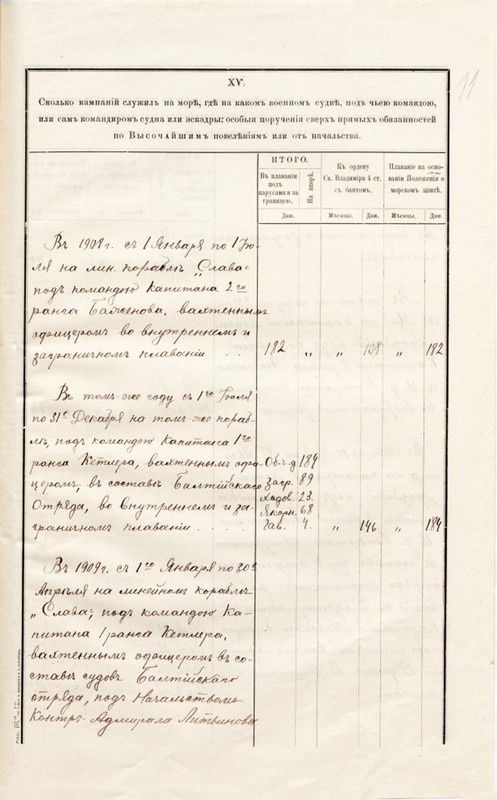 11
XV.
Сколько кампаній служилъ на морѣ, гдѣ на какомъ военномъ суднѣ, подъ чьею командою,
или самъ командиромъ судна или эскадры: особыя порученія сверхъ прямыхъ обязанностей
по Высочайшимъ повелѣніямъ или отъ начальства.
ИТОГО.
Въ плаваніи подъ парусами и за границею.
На якорѣ.
Къ ордену Св. Владиміра 4 ст. съ бантомъ.
Плаваніе на основаніи Положенія о морскомъ цензѣ.
Дни. Мѣсяцы. Дни. Мѣсяцы. Дни.
Въ 1908 г. съ 1 Января по 1 Iю-
ля на лин. кораблѣ „Слава"
подъ командою Капитана 2го
ранга Баженова, вахтеннымъ
офицеромъ во внутреннемъ и
заграничномъ плаваніи . . . 182 „ „ 138 „ 182
Въ томъ-же году съ 1го Iюля
по 31е Декабря на томъ-же кораб-
лѣ, подъ командою Капитана 1го
ранга Кетлера, вахтеннымъ офи- Об. ч. д. 184
церомъ, въ составѣ Балтійскаго Загр. 89
Отряда, во внутреннемъ и за- Ходов. 23.
граничномъ плаваніи . . . . Якорн. 68
Гав. 4. „ 146 „ 184
Въ 1909 г. съ 1го Января по 30е
Апрѣля на линейномъ кораблѣ
„Слава", подъ командою Ка-
питана 1 ранга Кетлера,
вахтеннымъ офицеромъ въ со-
ставѣ судовъ Балтійскаго
отряда, подъ Начальствомъ
Контръ-Адмирала Литвинова